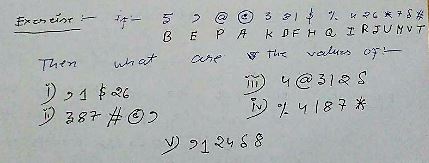 Exercise :- if- 5 9 @ © 3 8 1 $ % 4 2 6 * 7 δ #
B E P A K D F H Q I R J U M V T
Then what are the values of :-
i) 9 1 $ 2 6
iii) 4 @ 3 1 2 δ
ii) 3 8 7 # © 9
iv) % 4 1 8 7 *
v) 9 1 2 4 δ 8